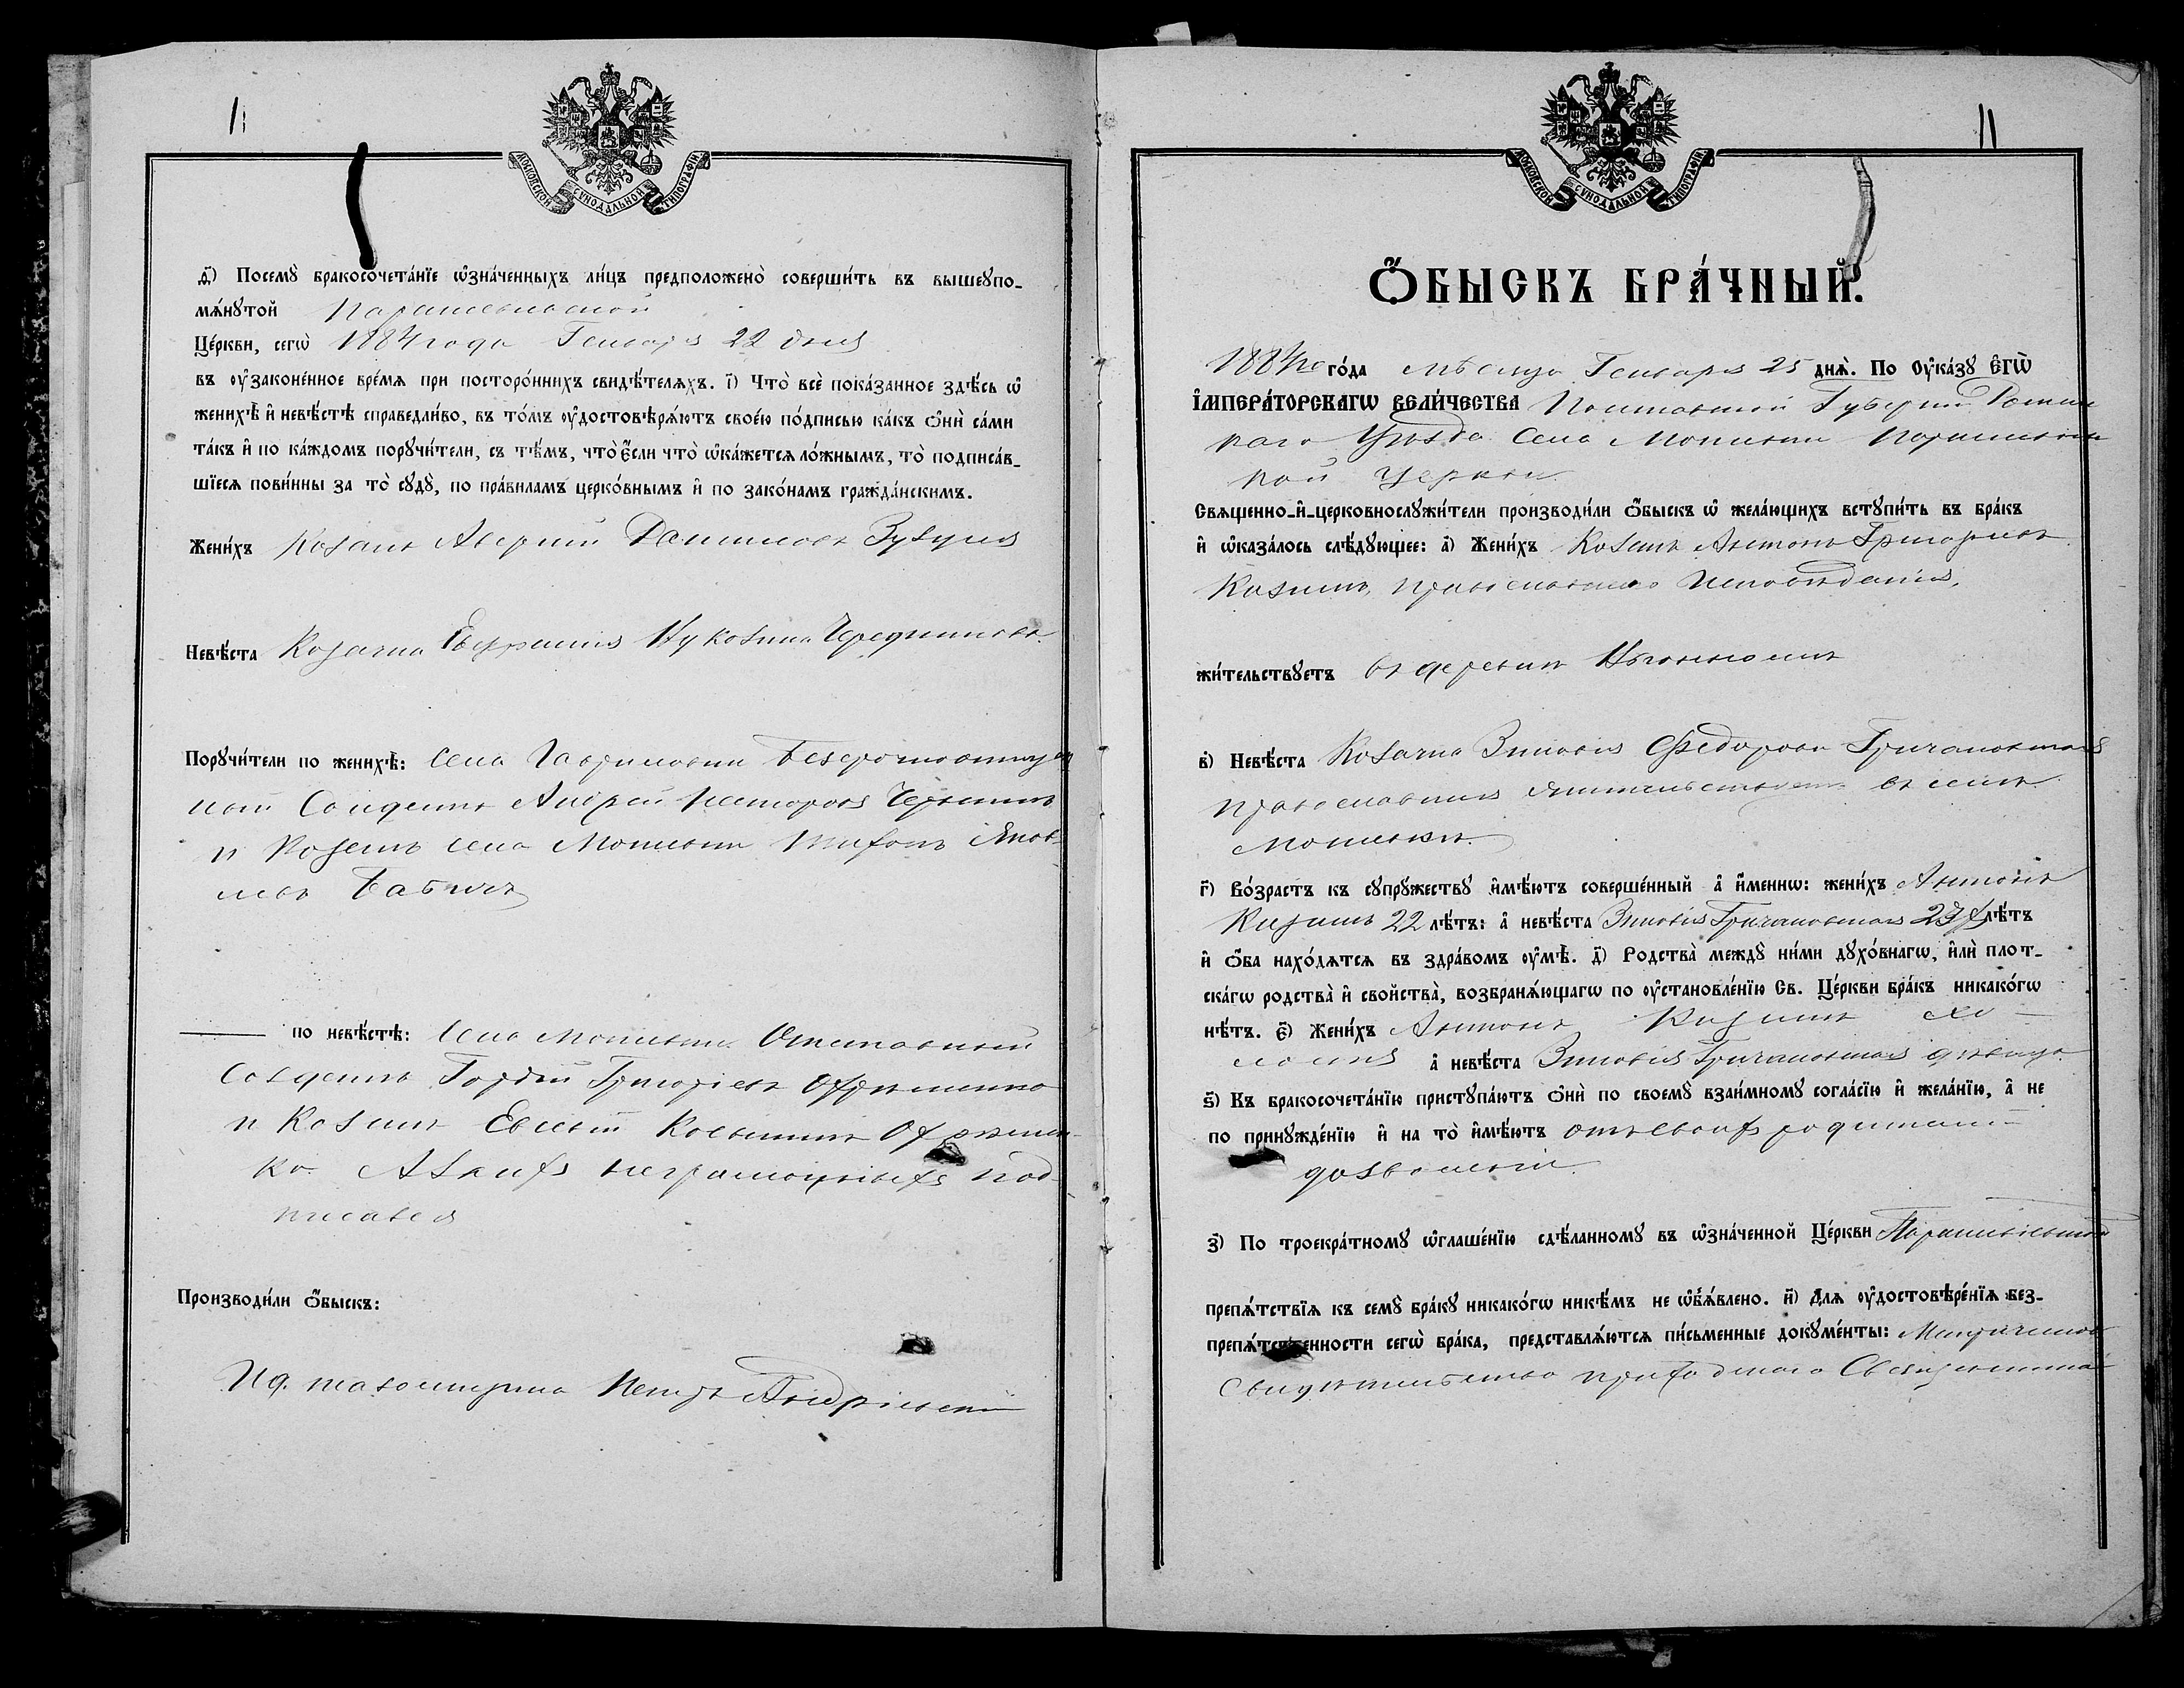 11
МОСКОВСКОЙ СѴНОДАЛЬНОЙ ТИПОГРАФІИ
д҃) Посемꙋ̀ бракосочета́нїе ѡ҆зна́ченныхъ ли́цъ предположено̀ соверши́ть въ вышеꙋпо-
мѧ́нꙋтой Парасковіевской
Це́ркви, сегѡ̀ 1884 года Генваря 22 дня
въ ᲂу҆законе́нное вре́мѧ при посторо́ннихъ свидѣ́телѧхъ. і҃) Что̀ всѐ пока́занное здѣ́сь ѡ҆
женихѣ̀ и҆ невѣ́стѣ справедли́во, въ то́мъ ᲂу҆достовѣрѧ́ютъ свое́ю по́дписью ка́къ ѻ҆нѝ са́ми
та́къ и҆ по ка́ждомъ порꙋчи́тели, съ тѣ́мъ, что̀ є҆́сли что̀ ѡ҆ка́жетсѧ ло́жнымъ, то̀ подписа́в-
шїесѧ пови́нны за то̀ сꙋдꙋ̀, по пра́виламъ церко́внымъ и҆ по зако́намъ гражда́нскимъ.
Жени́хъ Козакъ Аверкій Даниловъ Зубуля
Невѣ́ста Козачка
Порꙋчи́тели по женихѣ̀: Села Гавриловки
Солдатъ Андрей Несторовъ
и Козакъ села Мопиевки Трифонъ Яков-
левъ Бабичъ
по невѣ́стѣ: Села Мопиевки Отставный
Солдатъ Гордѣй Григоріевъ
и Козакъ Евсевій
ко. А за нихъ неграмотныхъ под-
писался
Производи́ли ѻ҆́быскъ:
Петръ Андріевскій
11
МОСКОВСКОЙ СѴНОДАЛЬНОЙ ТИПОГРАФІИ
Ѻ҆́БЫСКЪ БРА́ЧНЫЙ.
1884го го́да мѣсяца Генваря 25 днѧ̀. По Оу҆ка́зꙋ Є҆ГѠ̀
І҆МПЕРА́ТОРСКАГѠ ВЕЛИ́ЧЕСТВА Полтавской Губерніи Ромен
каго Уѣзда Села Мопиевки Парасковіевс
кой Церкви
Свѧщенно-и҆-церковнослꙋжи́тели производи́ли ѻ҆́быскъ ѡ҆ жела́ющихъ встꙋпи́ть въ бра́къ
и҆ ѡ҆каза́лось слѣ́дꙋющее: а҃) Жени́хъ Козакъ Антонъ Григоріевъ
православнаго исповѣданія,
жи́тельствꙋетъ въ деревнѣ
в҃) Невѣ́ста Козачка Зиновія Федорова Гричановская
православная жительствуетъ въ селѣ
Мопиевкѣ.
г҃) Во́зрастъ къ сꙋпрꙋ́жествꙋ и҆мѣ́ютъ соверше́нный а҆̀ и҆́меннѡ: жени́хъ Антонъ
22 лѣ́тъ: а҆̀ невѣ́ста Зиновія Гричановская лѣ́тъ
и҆ ѻ҆́ба нахо́дѧтсѧ въ здра́вомъ ᲂу҆мѣ̀. д҃) Родства̀ междꙋ̀ ни́ми дꙋхо́внагѡ, и҆лѝ плот-
ска́гѡ родства̀ и҆ свойства̀, возбранѧ́ющагѡ по ᲂу҆становле́нїю Св. Це́ркви бра́къ никако́гѡ
нѣ́тъ. є҃) Жени́хъ Антонъ хо-
лостъ а҆̀ невѣ́ста Зиновія Гричановская дѣвица
ѕ҃) Къ бракосочета́нїю пристꙋпа́ютъ ѻ҆нѝ по своемꙋ̀ взаи́мномꙋ согла́сїю и҆ жела́нїю, а҆̀ не
по принꙋжде́нїю и҆ на то̀ и҆мѣ́ютъ отъ своихъ родителей
дозволеніе.
з҃) По троекра́тномꙋ ѡ҆глаше́нїю сдѣ́ланномꙋ въ ѡ҆зна́ченной Це́ркви Парасковіевской
препѧ́тствїѧ къ семꙋ̀ бра́кꙋ никако́гѡ никѣ́мъ не ѡ҆б̾ѧ́влено. и҃) Длѧ ᲂу҆достовѣре́нїѧ без-
препѧ́тственности сегѡ̀ бра́ка, представлѧ́ютсѧ пи́сьменные докꙋме́нты: Метрическое
Свидѣтельство приходскаго Священника